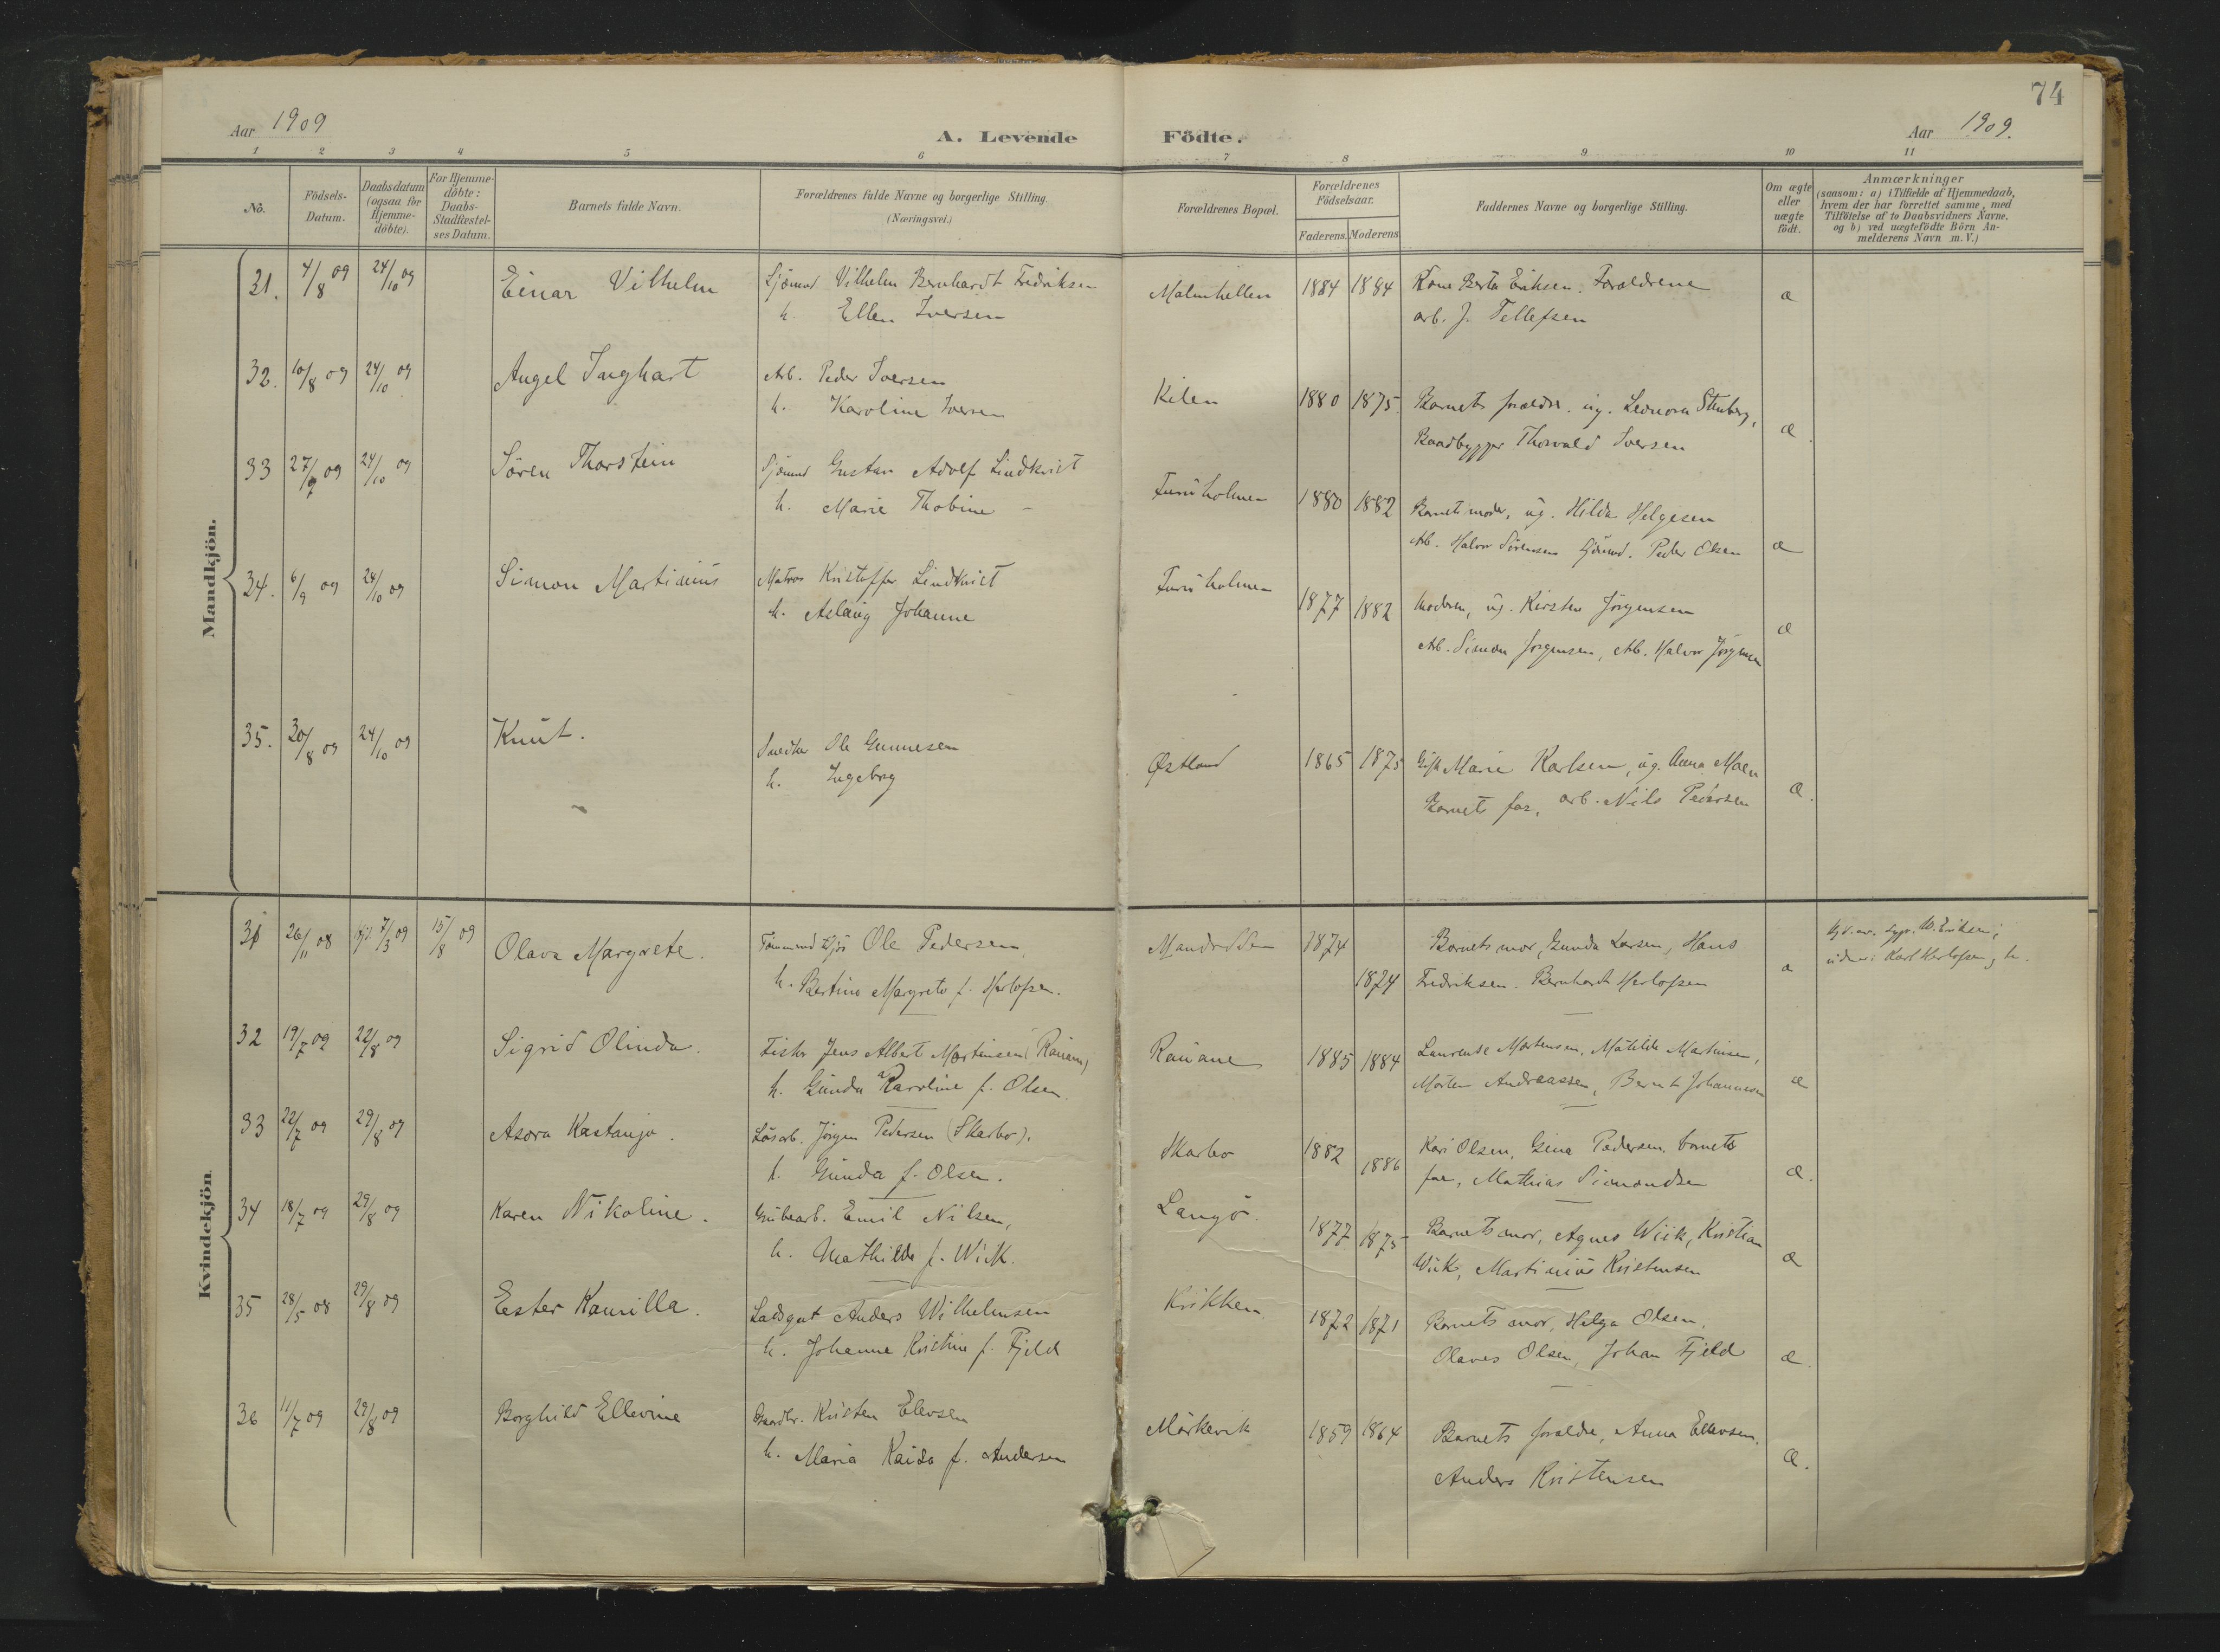 74
Aar 1909
A. Levende Födte.
Aar 1909.
1 2 3 4 5 6 7 8 9 10 11
No.
Födsels-
Datum.
Daabsdatum
(ogsaa for
Hjemme-
döbte).
For Hjemme-
döbte:
Daabs-
Stadfæstel-
ses Datum.
Barnets fulde Navn.
Forældrenes fulde Navne og borgerlige Stilling.
(Næringsvei.)
Forældrenes Bopæl.
Forældrenes
Födselsaar.
Faderens. Moderens
Faddernes Navne og borgerlige Stilling.
Om ægte
eller
uægte
födt.
Anmærkninger
(saasom: a) i Tilfælde af Hjemmedaab,
hvem der har forrettet samme, med
Tilföielse af to Daabsvidners Navne.
og b) ved uægtefödte Börn An-
melderens Navn m. V.)
Mandkjön.
31. 4/8 09 24/10 09 Einar Vilhelm Sjömand Vilhelm Bernhardt Fredriksen Malmhellen 1884 1884 Kone Berta Eriksen. Forældrene æ
h. Ellen Iversen arb. J. Tellefsen
32. 10/8 09 24/10 09 Angel Inghart Arb. Peder Iversen Kilen 1880 1875 Barnets forældre. ug. Leonora Stenberg, æ.
h. Karoline Iversen Baadbygger Thorvald Iversen
33 27/9 09 24/10 09 Sören Thorstein Sjömand Gustav Adolf Lindkvist Furuholmen 1880 1882 Barnets moder, ug. Hilda Helgesen
h. Marie Thobine - Arb. Halvor Sörensen Sjömd. Peder Olsen æ
34. 6/9 09 24/10 09 Simon Martinius Matros Kristoffer Lindkvist Furuholmen 1877 1882 Moderen, ug. Kirsten Jörgensen æ
h. Aslaug Johanne Arb. Simon Jörgensen, Arb. Halvor Jörgensen
35. 20/8 09 24/10 09 Knut. Snedker Ole Gunnesen Østland 1865 1875 Gift Marie Karlsen, ug. Anna Moen
h. Ingeborg Barnets far, arb. Nils Pedersen æ.
Kvindekjön
31 26/11 08 Hjd. 7/3 09 15/8 09 Olava Margrete. Tömmermd Ole Pedersen, 1874 Barnets mor, Gunda Larsen, Hans æ
h. Bertine Margrete f. Herlofsen. 1874 Fredriksen. Bernhardt Herlofsen
Karl Herlofsen
32 19/7 09 22/8 09 Sigrid Olinda. Fisker Jens Albert Mortensen (Rauane) Rauane 1885 1884 Laurense Mortensen, Matilde Martinsen,
h. Gunda Karoline f. Olsen. Morten Andreassen, Bernt Johannesen æ
33 22/7 09 29/8 09 Asora Kastanja. Lösarb. Jörgen Pedersen (Skarbo). Skarbo 1882 1886 Kari Olsen, Gina Pedersen, barnets
h. Gunda f. Olsen. far, Mathias Simondsen æ.
34 18/7 09 29/8 09 Karen Nikoline. Grubearb. Emil Nilsen, Langö. 1877 1875 Barnets mor, Agnes Wiik, Kristian
h. Mathilde f. Wiik. Wiik, Martinius Kristensen æ
35 28/5 08 29/8 09 Ester Kamilla. Ladsgut Anders Wilhelmsen Krikken 1872 1871 Barnets mor, Helga Olsen,
h. Johanne Kristine f. Fjeld Olaves Olsen, Johan Fjeld æ.
36 11/7 09 29/8 09 Borghild Ellevine Gaardbr. Kristen Elevsen Mörkevik 1859 1864 Barnets forældre, Anna Ellevsen,
h. Maria Kaisa f. Andersen Anders Kristensen æ.